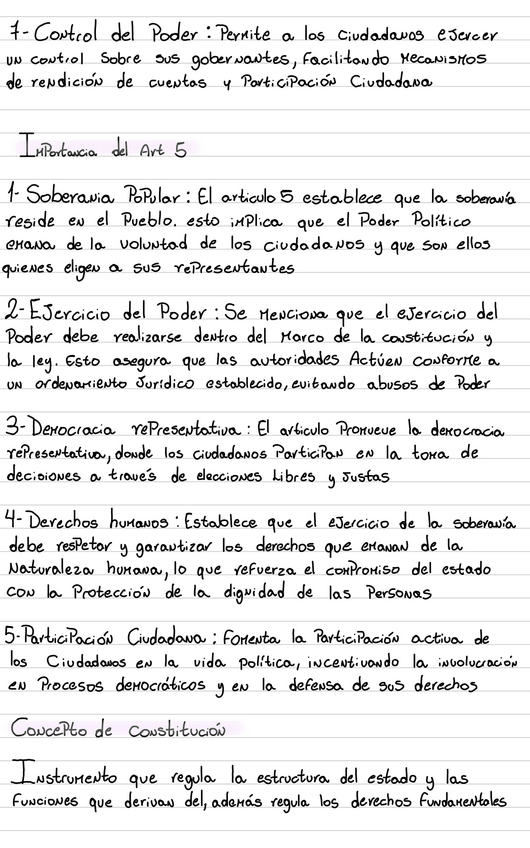 7- Control del Poder : Permite a los ciudadanos ejercer
un control sobre sus gobernantes, facilitando mecanismos
de rendición de cuentas y Participación Ciudadana
Importancia del Art 5
1- Soberania Popular : El articulo 5 establece que la soberanía
reside en el Pueblo. esto implica que el Poder Político
emana de la voluntad de los ciudadanos y que son ellos
quienes eligen a sus representantes
2- Ejercicio del Poder : Se menciona que el ejercicio del
Poder debe realizarse dentro del marco de la constitución y
la ley. Esto asegura que las autoridades Actúen conforme a
un ordenamiento Jurídico establecido, evitando abusos de Poder
3- Democracia representativa : El articulo Promueve la democracia
representativa, donde los ciudadanos Participan en la toma de
decisiones a través de elecciones Libres y Justas
4- Derechos humanos : Establece que el ejercicio de la soberanía
debe respetar y garantizar los derechos que emanan de la
Naturaleza humana, lo que refuerza el compromiso del estado
con la Protección de la dignidad de las Personas
5- Participación Ciudadana : Fomenta la Participación activa de
los Ciudadanos en la vida política, incentivando la involucración
en Procesos democráticos y en la defensa de sus derechos
Concepto de Constitución
Instrumento que regula la estructura del estado y las
Funciones que derivan del, además regula los derechos fundamentales